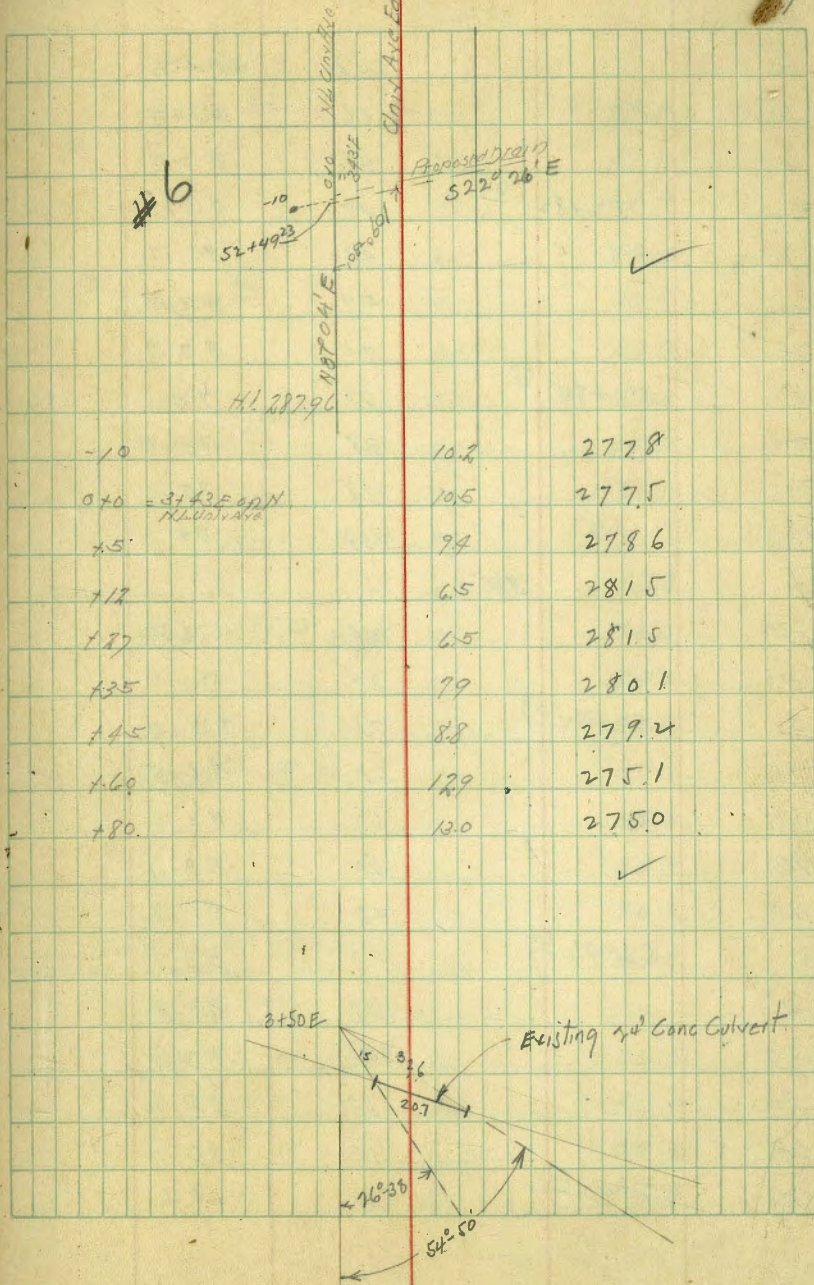 N L Univ Ave
Univ Ave Ea
#6
0+0 =
3+43 E
-10
52+49 23
Proposed Drain
S 22° 26' E
N 87° 04' E
H.I. 287.96
-10 10.2 277.8
0+0 = 3+43 E on N
N L Univ Ave
10.5 277.5
+5 9.4 278.6
+12 6.5 281.5
+27 6.5 281.5
+35 7.9 280.1
+45 8.8 279.2
+60 12.9 275.1
+80 13.0 275.0
3+50 E
15
Existing 24" Conc Culvert
20.7
26°-38
54°-50'